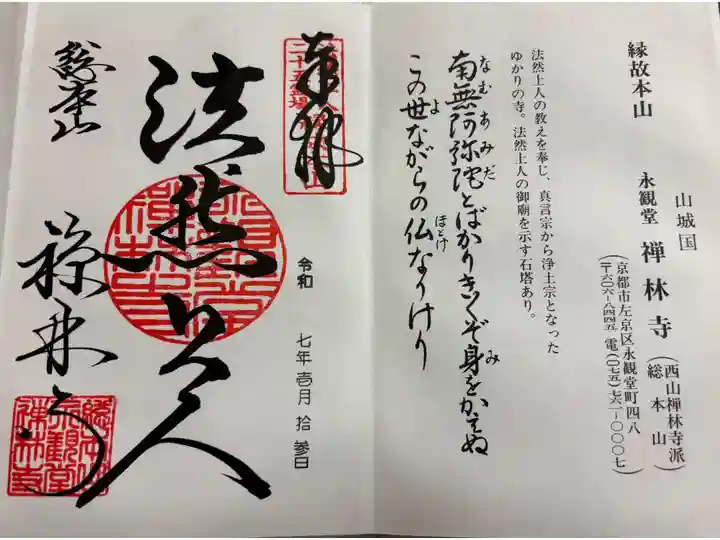 山城国
縁故本山 永観堂 禅林寺 (西山禅林寺派
総本山)
(京都市左京区永観堂町四八
〒六〇六-八四四五 電(〇七五)七六一-〇〇〇七)
法然上人の教えを奉じ、真言宗から浄土宗となった
ゆかりの寺。法然上人の御廟を示す石塔あり。
なむあみだ み
南無阿弥陀とばかりきくぞ身をかえぬ
よ ほとけ
この世ながらの仏なりけり
奉拝
令和 七年壱月拾参日
法然上人
総本山
禅林寺
総本山
永観堂
禅林寺